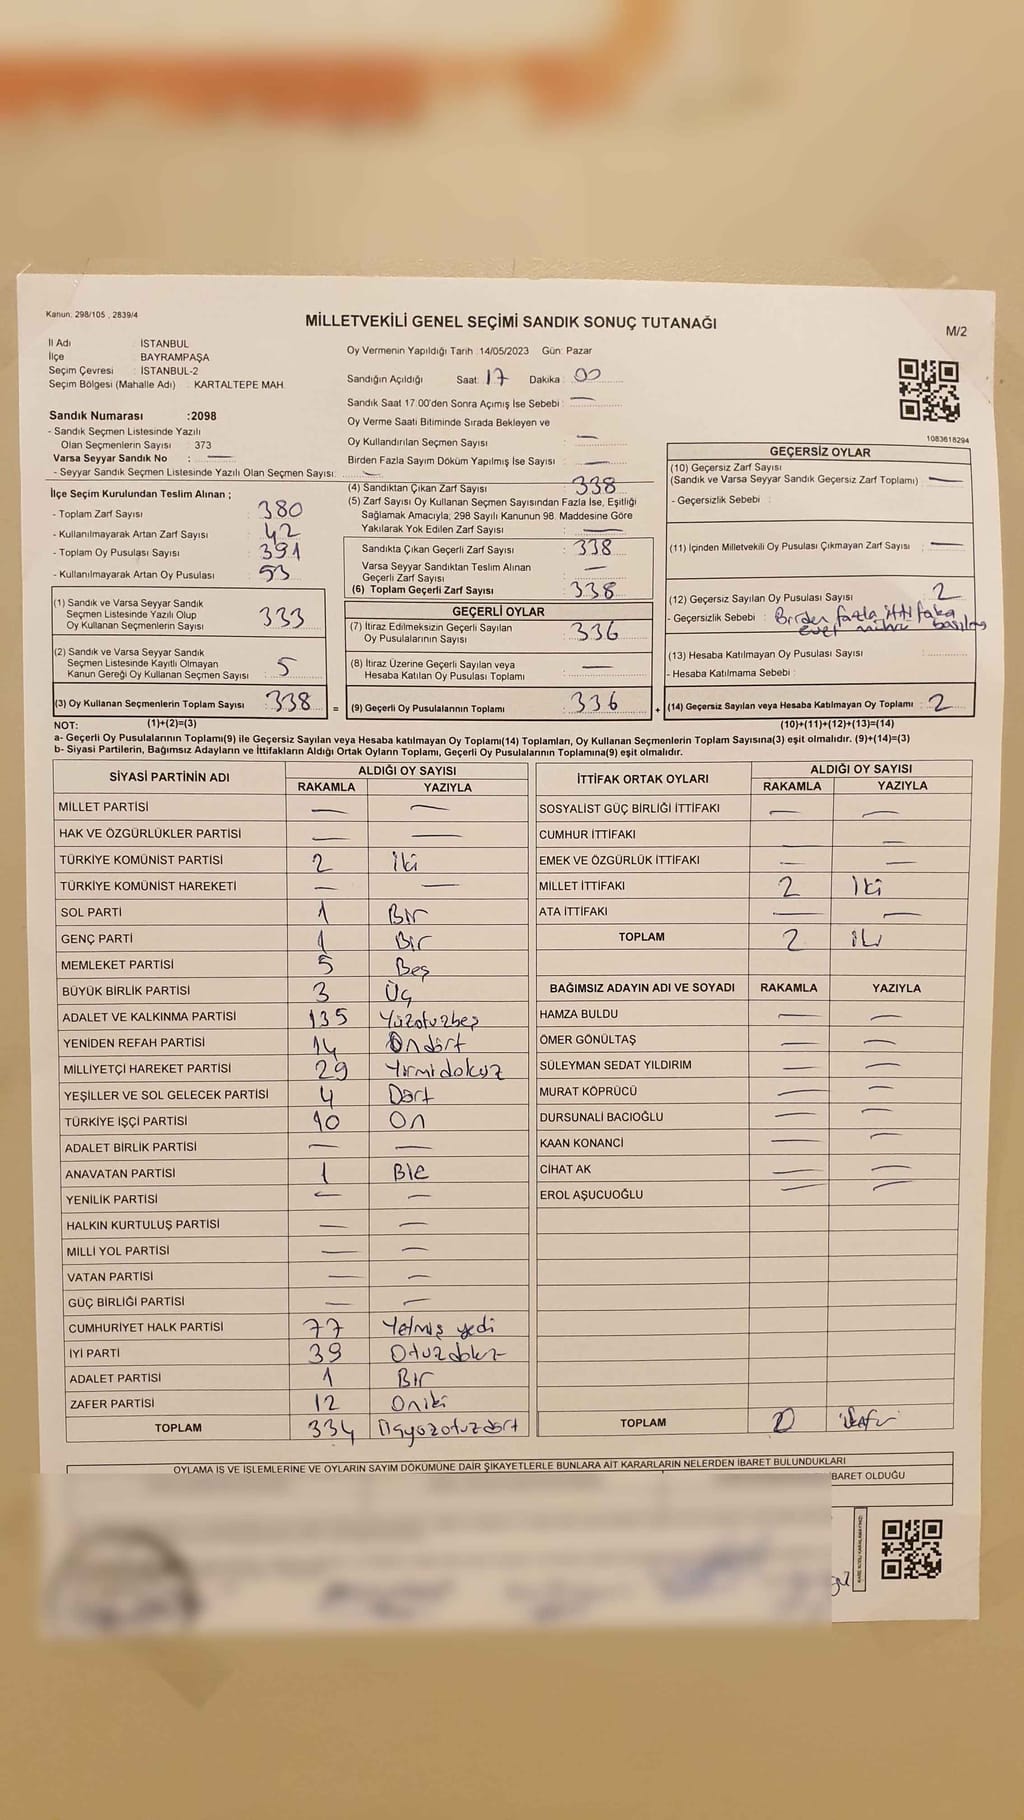 Kanun: 298/105 , 2839/4
MİLLETVEKİLİ GENEL SEÇİMİ SANDIK SONUÇ TUTANAĞI
M/2
İl Adı : İSTANBUL
İlçe : BAYRAMPAŞA
Seçim Çevresi : İSTANBUL-2
Seçim Bölgesi (Mahalle Adı) : KARTALTEPE MAH.
Sandık Numarası :2098
- Sandık Seçmen Listesinde Yazılı
Olan Seçmenlerin Sayısı : 373
Varsa Seyyar Sandık No : —
- Seyyar Sandık Seçmen Listesinde Yazılı Olan Seçmen Sayısı: —
İlçe Seçim Kurulundan Teslim Alınan ;
- Toplam Zarf Sayısı : 380
- Kullanılmayarak Artan Zarf Sayısı : 42
- Toplam Oy Pusulası Sayısı : 391
- Kullanılmayarak Artan Oy Pusulası : 53
(1) Sandık ve Varsa Seyyar Sandık
Seçmen Listesinde Yazılı Olup
Oy Kullanan Seçmenlerin Sayısı : 333
(2) Sandık ve Varsa Seyyar Sandık
Seçmen Listesinde Kayıtlı Olmayan
Kanun Gereği Oy Kullanan Seçmen Sayısı : 5
(3) Oy Kullanan Seçmenlerin Toplam Sayısı : 338
Oy Vermenin Yapıldığı Tarih :14/05/2023 Gün: Pazar
Sandığın Açıldığı Saat: 17 Dakika : 00
Sandık Saat 17.00'den Sonra Açımış İse Sebebi : —
Oy Verme Saati Bitiminde Sırada Bekleyen ve
Oy Kullandırılan Seçmen Sayısı : —
Birden Fazla Sayım Döküm Yapılmış İse Sayısı : —
(4) Sandıktan Çıkan Zarf Sayısı : 338
(5) Zarf Sayısı Oy Kullanan Seçmen Sayısından Fazla İse, Eşitliği
Sağlamak Amacıyla, 298 Sayılı Kanunun 98. Maddesine Göre
Yakılarak Yok Edilen Zarf Sayısı : —
Sandıkta Çıkan Geçerli Zarf Sayısı : 338
Varsa Seyyar Sandıktan Teslim Alınan
Geçerli Zarf Sayısı : —
(6) Toplam Geçerli Zarf Sayısı : 338
GEÇERLİ OYLAR
(7) İtiraz Edilmeksizin Geçerli Sayılan
Oy Pusulalarının Sayısı : 336
(8) İtiraz Üzerine Geçerli Sayılan veya
Hesaba Katılan Oy Pusulası Toplamı : —
= (9) Geçerli Oy Pusulalarının Toplamı : 336 +
1083618294
GEÇERSİZ OYLAR
(10) Geçersiz Zarf Sayısı
(Sandık ve Varsa Seyyar Sandık Geçersiz Zarf Toplamı) : —
- Geçersizlik Sebebi :
(11) İçinden Milletvekili Oy Pusulası Çıkmayan Zarf Sayısı : —
(12) Geçersiz Sayılan Oy Pusulası Sayısı : 2
- Geçersizlik Sebebi : Birden fazla ittifaka
evet mührü basılmış
(13) Hesaba Katılmayan Oy Pusulası Sayısı :
- Hesaba Katılmama Sebebi :
(14) Geçersiz Sayılan veya Hesaba Katılmayan Oy Toplamı : 2
NOT: (1)+(2)=(3) (10)+(11)+(12)+(13)=(14)
a- Geçerli Oy Pusulalarının Toplamı(9) ile Geçersiz Sayılan veya Hesaba katılmayan Oy Toplamı(14) Toplamları, Oy Kullanan Seçmenlerin Toplam Sayısına(3) eşit olmalıdır. (9)+(14)=(3)
b- Siyasi Partilerin, Bağımsız Adayların ve İttifakların Aldığı Ortak Oyların Toplamı, Geçerli Oy Pusulalarının Toplamına(9) eşit olmalıdır.
SİYASİ PARTİNİN ADI ALDIĞI OY SAYISI
RAKAMLA YAZIYLA
MİLLET PARTİSİ — —
HAK VE ÖZGÜRLÜKLER PARTİSİ — —
TÜRKİYE KOMÜNİST PARTİSİ 2 iki
TÜRKİYE KOMÜNİST HAREKETİ — —
SOL PARTİ 1 Bir
GENÇ PARTİ 1 Bir
MEMLEKET PARTİSİ 5 Beş
BÜYÜK BİRLİK PARTİSİ 3 Üç
ADALET VE KALKINMA PARTİSİ 135 Yüzotuzbeş
YENİDEN REFAH PARTİSİ 14 Ondört
MİLLİYETÇİ HAREKET PARTİSİ 29 Yirmidokuz
YEŞİLLER VE SOL GELECEK PARTİSİ 4 Dört
TÜRKİYE İŞÇİ PARTİSİ 10 On
ADALET BİRLİK PARTİSİ — —
ANAVATAN PARTİSİ 1 Bir
YENİLİK PARTİSİ — —
HALKIN KURTULUŞ PARTİSİ — —
MİLLİ YOL PARTİSİ — —
VATAN PARTİSİ — —
GÜÇ BİRLİĞİ PARTİSİ — —
CUMHURİYET HALK PARTİSİ 77 Yetmiş yedi
İYİ PARTİ 39 Otuzdokuz
ADALET PARTİSİ 1 Bir
ZAFER PARTİSİ 12 Oniki
TOPLAM 334 Üçyüzotuzdört
İTTİFAK ORTAK OYLARI ALDIĞI OY SAYISI
RAKAMLA YAZIYLA
SOSYALİST GÜÇ BİRLİĞİ İTTİFAKI — —
CUMHUR İTTİFAKI —
EMEK VE ÖZGÜRLÜK İTTİFAKI — —
MİLLET İTTİFAKI 2 iki
ATA İTTİFAKI — —
TOPLAM 2 iki
BAĞIMSIZ ADAYIN ADI VE SOYADI RAKAMLA YAZIYLA
HAMZA BULDU — —
ÖMER GÖNÜLTAŞ — —
SÜLEYMAN SEDAT YILDIRIM — —
MURAT KÖPRÜCÜ — —
DURSUNALİ BACIOĞLU — —
KAAN KONANCİ — —
CİHAT AK — —
EROL AŞUCUOĞLU — —
TOPLAM 0
OYLAMA İŞ VE İŞLEMLERİNE VE OYLARIN SAYIM DÖKÜMÜNE DAİR ŞİKAYETLERLE BUNLARA AİT KARARLARIN NELERDEN İBARET BULUNDUKLARI
İBARET OLDUĞU